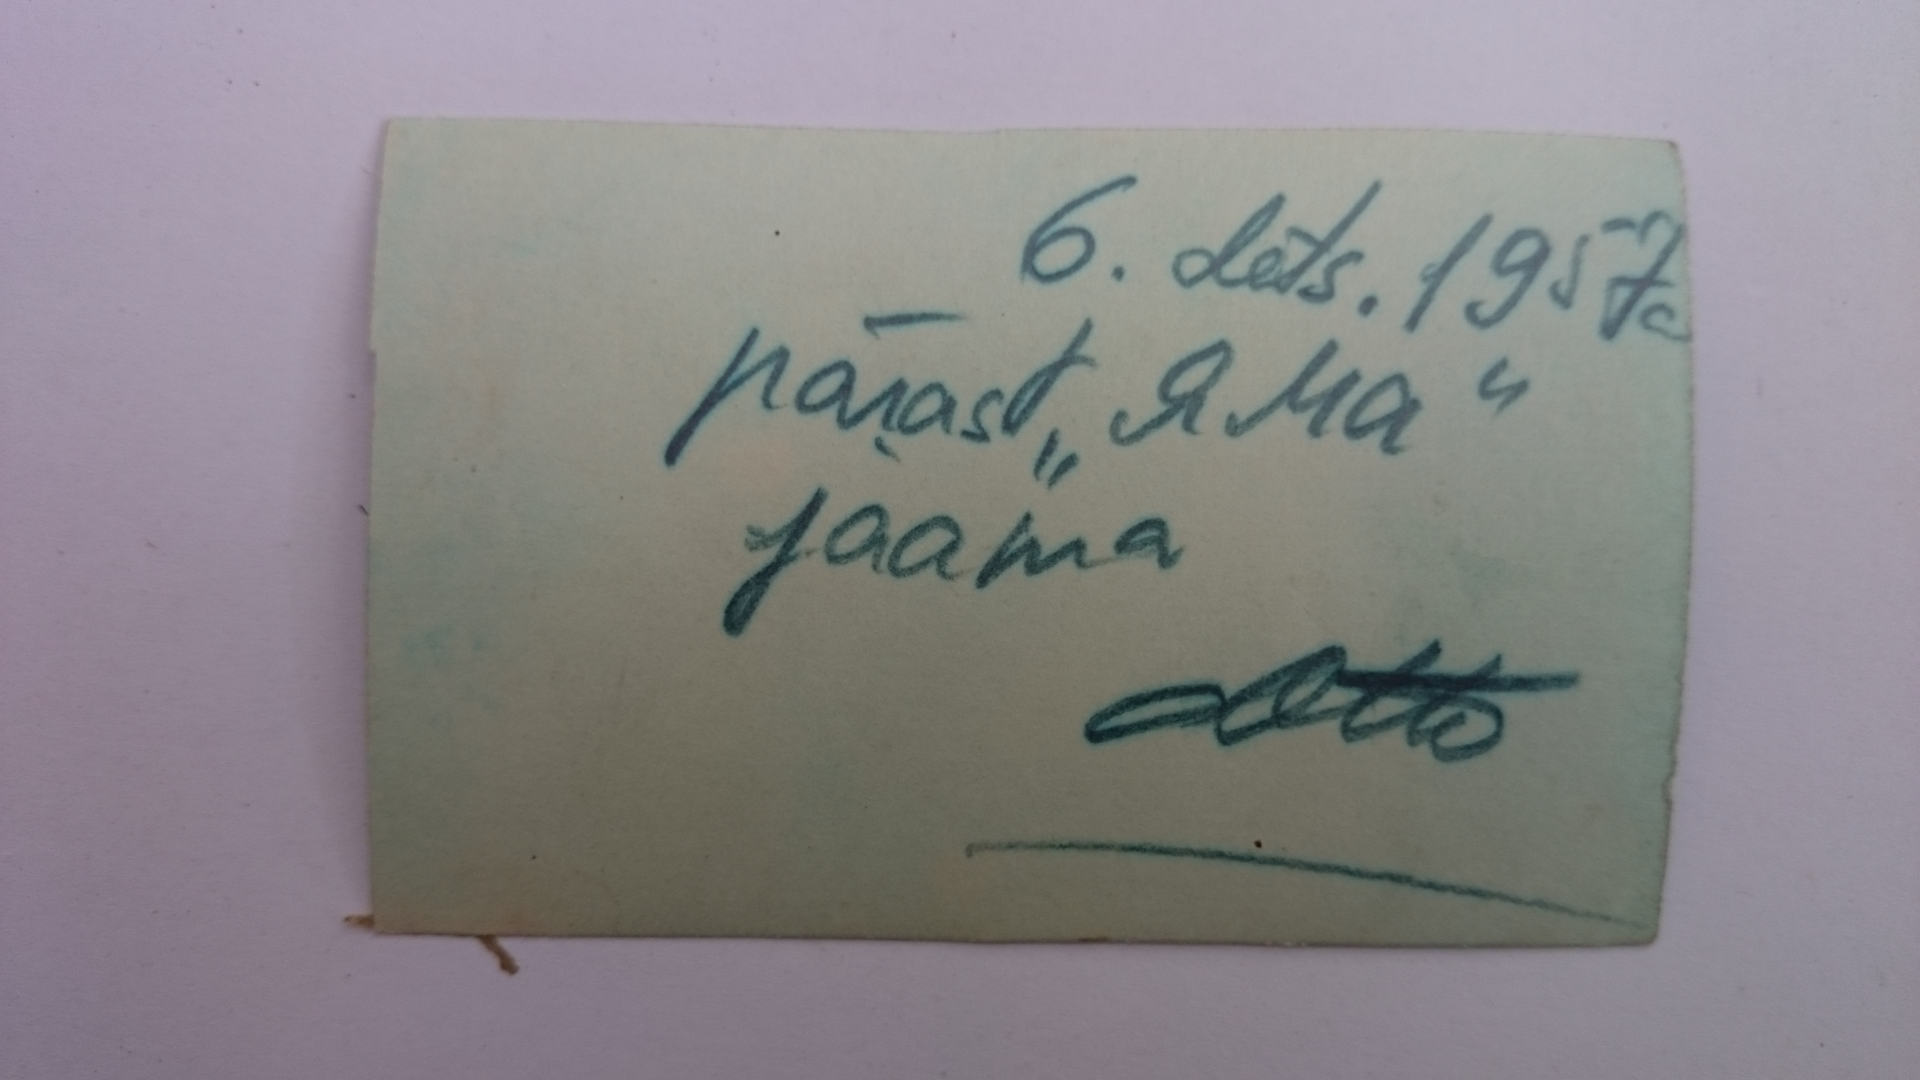 6. dets. 1957a
pärast „Яма“
jaama
Otto